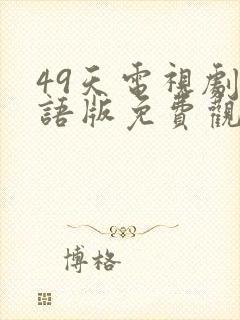 49天電視劇
語版免費觀
博格